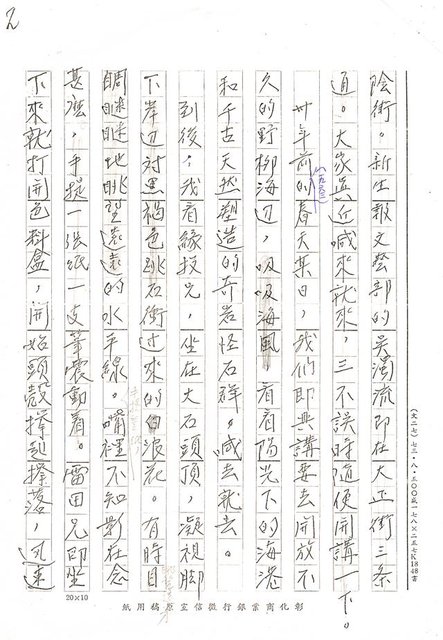 2
陰街。新生報文藝部的吳濁流即在大正街三條
通。大家真近喊來就來，三不誤時隨便開講一下。
卅年前的(一九五三)春天某日，我們即興講要去開放不
久的野柳海边，吸吸海風，看看陽光下的海港
和千古天然塑造的奇岩怪石群。喊去就去。
到後，我看緣投兄，坐在大石頭頂，凝視腳
下岸边対黑褐色跳石衝过來的白波花。有時目
睭瞇瞇地眺望遠遠的水平線。嘴裡不知影在念
甚麼，手提一張紙一支筆震動着。雷田兄即坐
下來就打開色料盒，開始頭殼擇起擇落，迅速
20×10
彰化商業銀行徵信室原稿用紙
(大二七)七三·八·五〇〇本一七八×二五七 1848 書